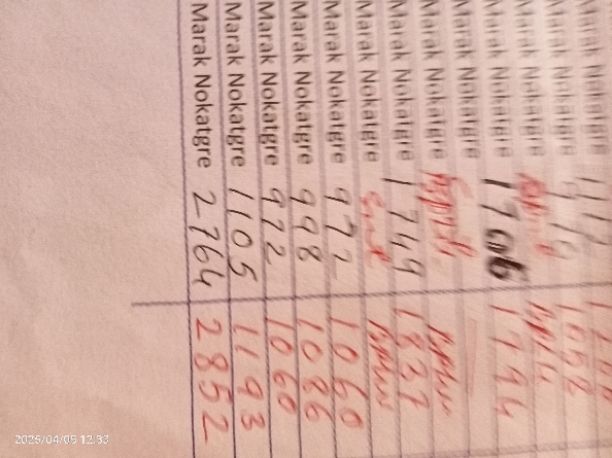 Marak Nokatgre
Marak Nokatgre 970 1058
Marak Nokatgre
Marak Nokatgre 1706 1794
Marak Nokatgre
Marak Nokatgre
Marak Nokatgre 1749 1837
Marak Nokatgre
Marak Nokatgre 972 1060
Marak Nokatgre 998 1086
Marak Nokatgre 972 1060
Marak Nokatgre 1105 1193
Marak Nokatgre 2764 2852